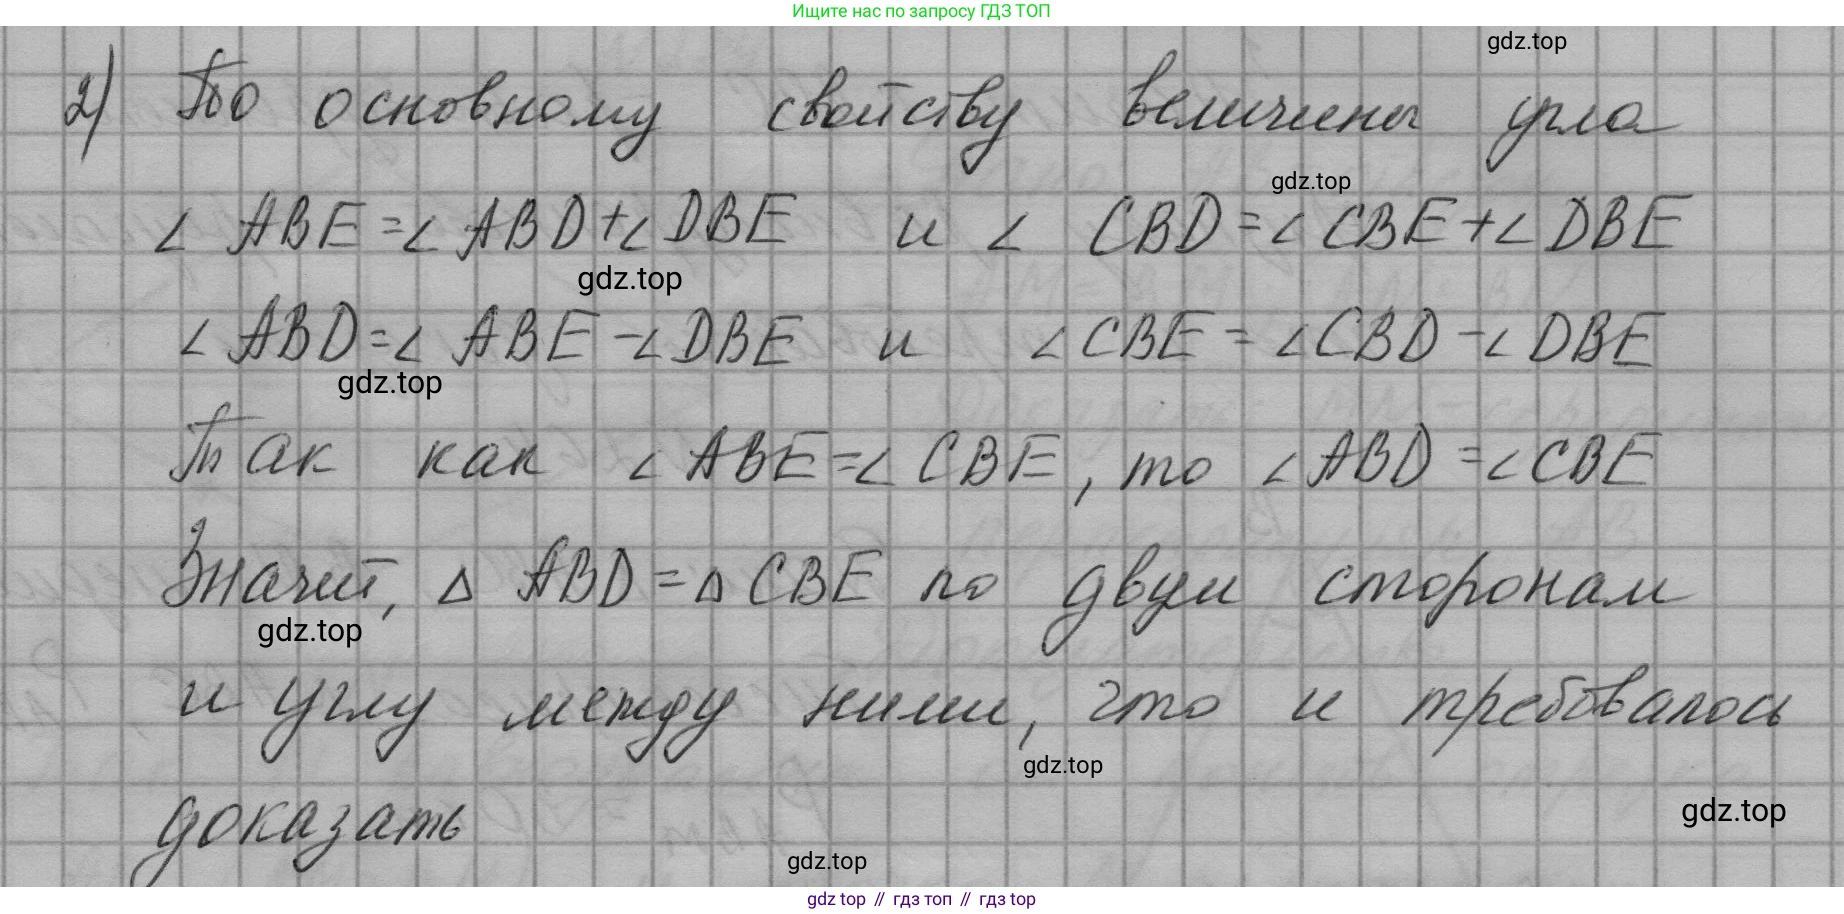 Ищите нас по запросу ГДЗ ТОП
gdz.top
2) По основному свойству величины угла
gdz.top
∠ ABE = ∠ ABD + ∠ DBE и ∠ CBD = ∠ CBE + ∠ DBE
gdz.top
∠ ABD = ∠ ABE - ∠ DBE и ∠ CBE = ∠ CBD - ∠ DBE
gdz.top
Так как ∠ ABE = ∠ CBE, то ∠ ABD = ∠ CBE
Значит, Δ ABD = Δ CBE по двум сторонам
gdz.top
и углу между ними, что и требовалось
gdz.top
доказать
gdz.top
gdz.top
gdz top // гдз топ // гдз top